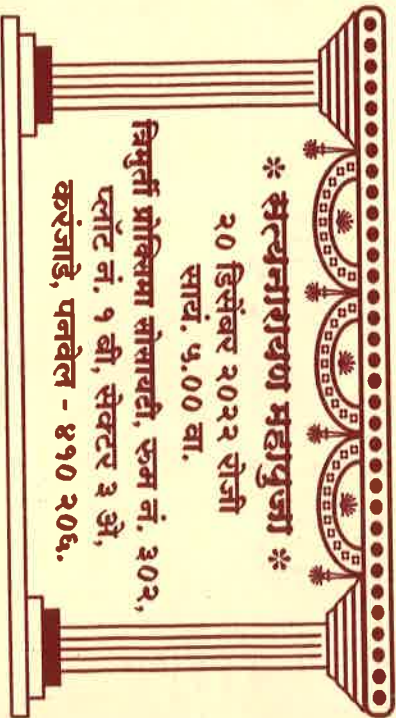 * सत्यनारायण महापुजा *
२० डिसेंबर २०२२ रोजी
सायं. ५.00 वा.
त्रिमुर्ती प्रोक्सिमा सोसायटी, रुम नं. ३०२,
प्लॉट नं. ९ बी, सेक्टर ३ ऐ,
करंजाडे, पनवेल - ४१० २०६.